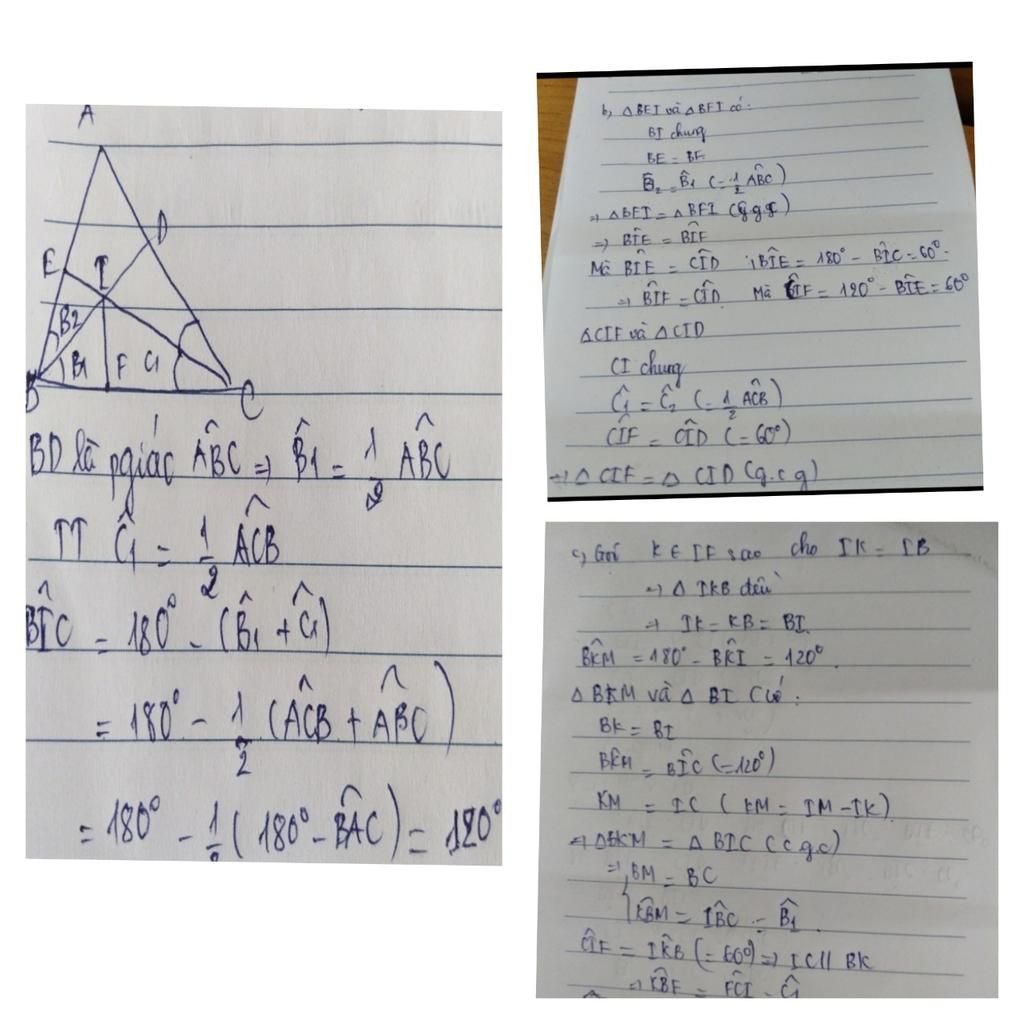 A
D
E
I
B2
B1
F
C1
B
C
BD là pgiác ABĈ => B̂1 = 1/2 ABĈ
TT Ĉ1 = 1/2 AĈB
BÎC = 180° - (B̂1 + Ĉ1)
= 180° - 1/2 (AĈB + AB̂C)
= 180° - 1/2 (180° - BÂC) = 120°
b, △BEI và △BFI có:
BI chung
BE = BF
B̂2 = B̂1 (= 1/2 AB̂C)
=> △BEI = △BFI (c.g.c)
=> BÎE = BÎF
Mà BÎE = CÎD ; BÎE = 180° - BÎC = 60°
=> BÎF = CÎD Mà CÎF = 120° - BÎE = 60°
△CIF và △CID
CI chung
Ĉ1 = Ĉ2 (= 1/2 AĈB)
CÎF = CÎD (= 60°)
=> △CIF = △CID (g.c.g)
c, Gọi K ∈ IF sao cho IK = IB
=> △IKB đều
=> IK = KB = BI
BK̂M = 180° - BK̂I = 120°
△BKM và △BIC có:
BK = BI
BK̂M = BÎC (= 120°)
KM = IC (KM = IM - IK)
=> △BKM = △BIC (c.g.c)
=> BM = BC
KB̂M = IB̂C = B̂1
CÎF = IK̂B (= 60°) => IC // BK
=> KB̂F = FĈI = Ĉ1